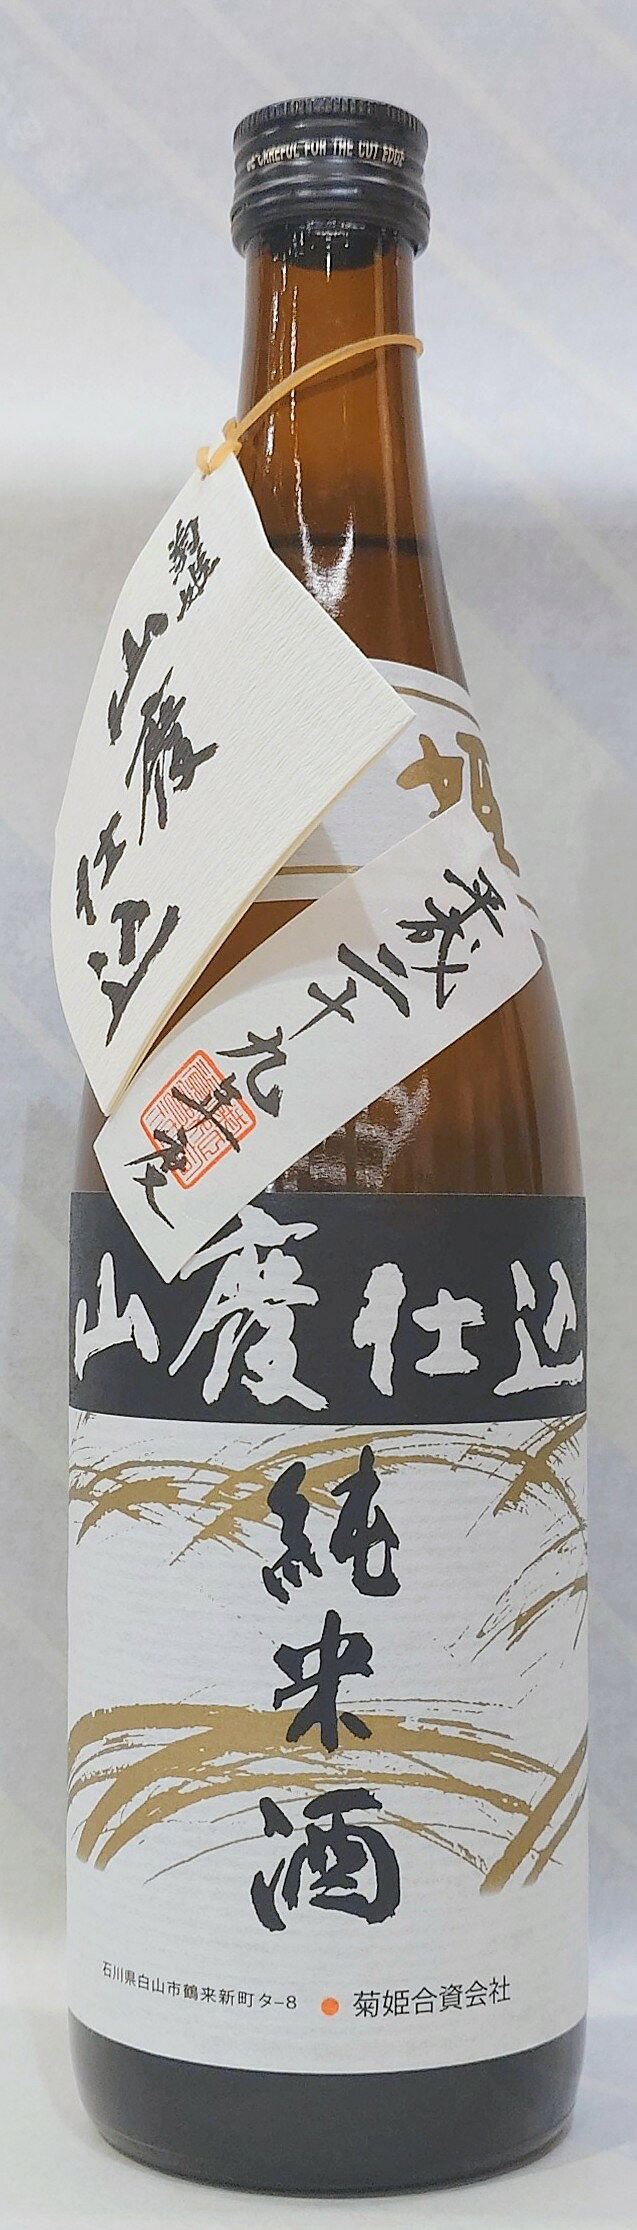 BE CAREFUL FOR THE CUT EDGE
菊姫
山廃仕込
平成二十九年度
山廃仕込
純米酒
石川県白山市鶴来新町タ-8
菊姫合資会社